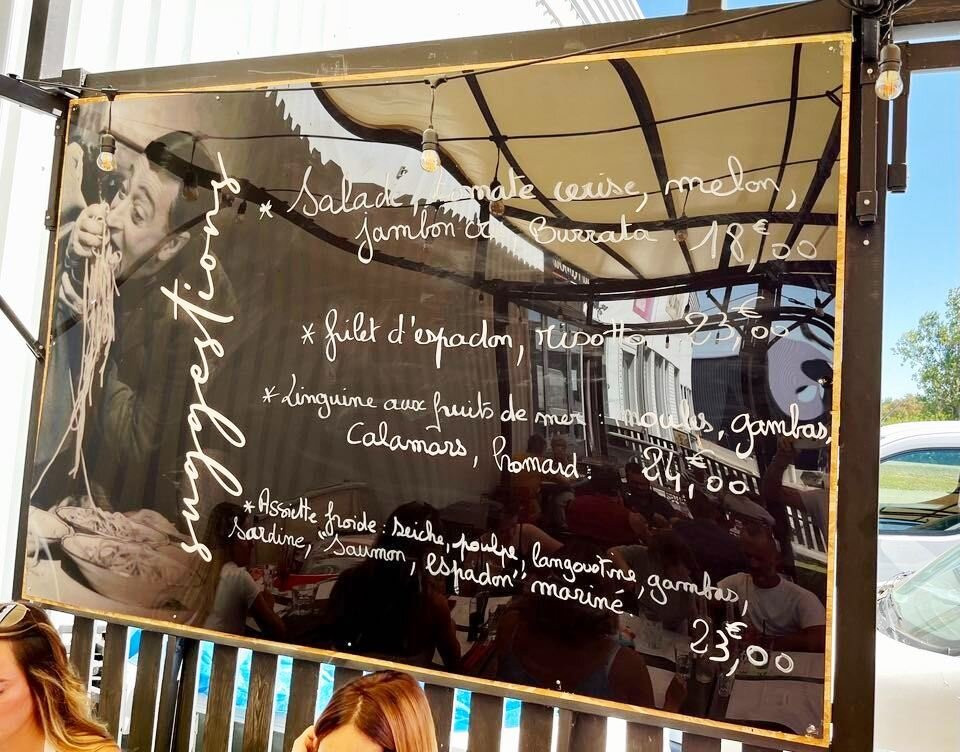 suggestions
* Salade, tomate cerise, melon,
jambon cru, Burrata 18,€00
* filet d'espadon, risotto. 23,€00
* Linguine aux fruits de mer : moules, gambas,
Calamars, homard. 24,€00
* Assiette froide : seiche, poulpe, langoustine, gambas,
sardine, "saumon, espadon" mariné.
23,€00